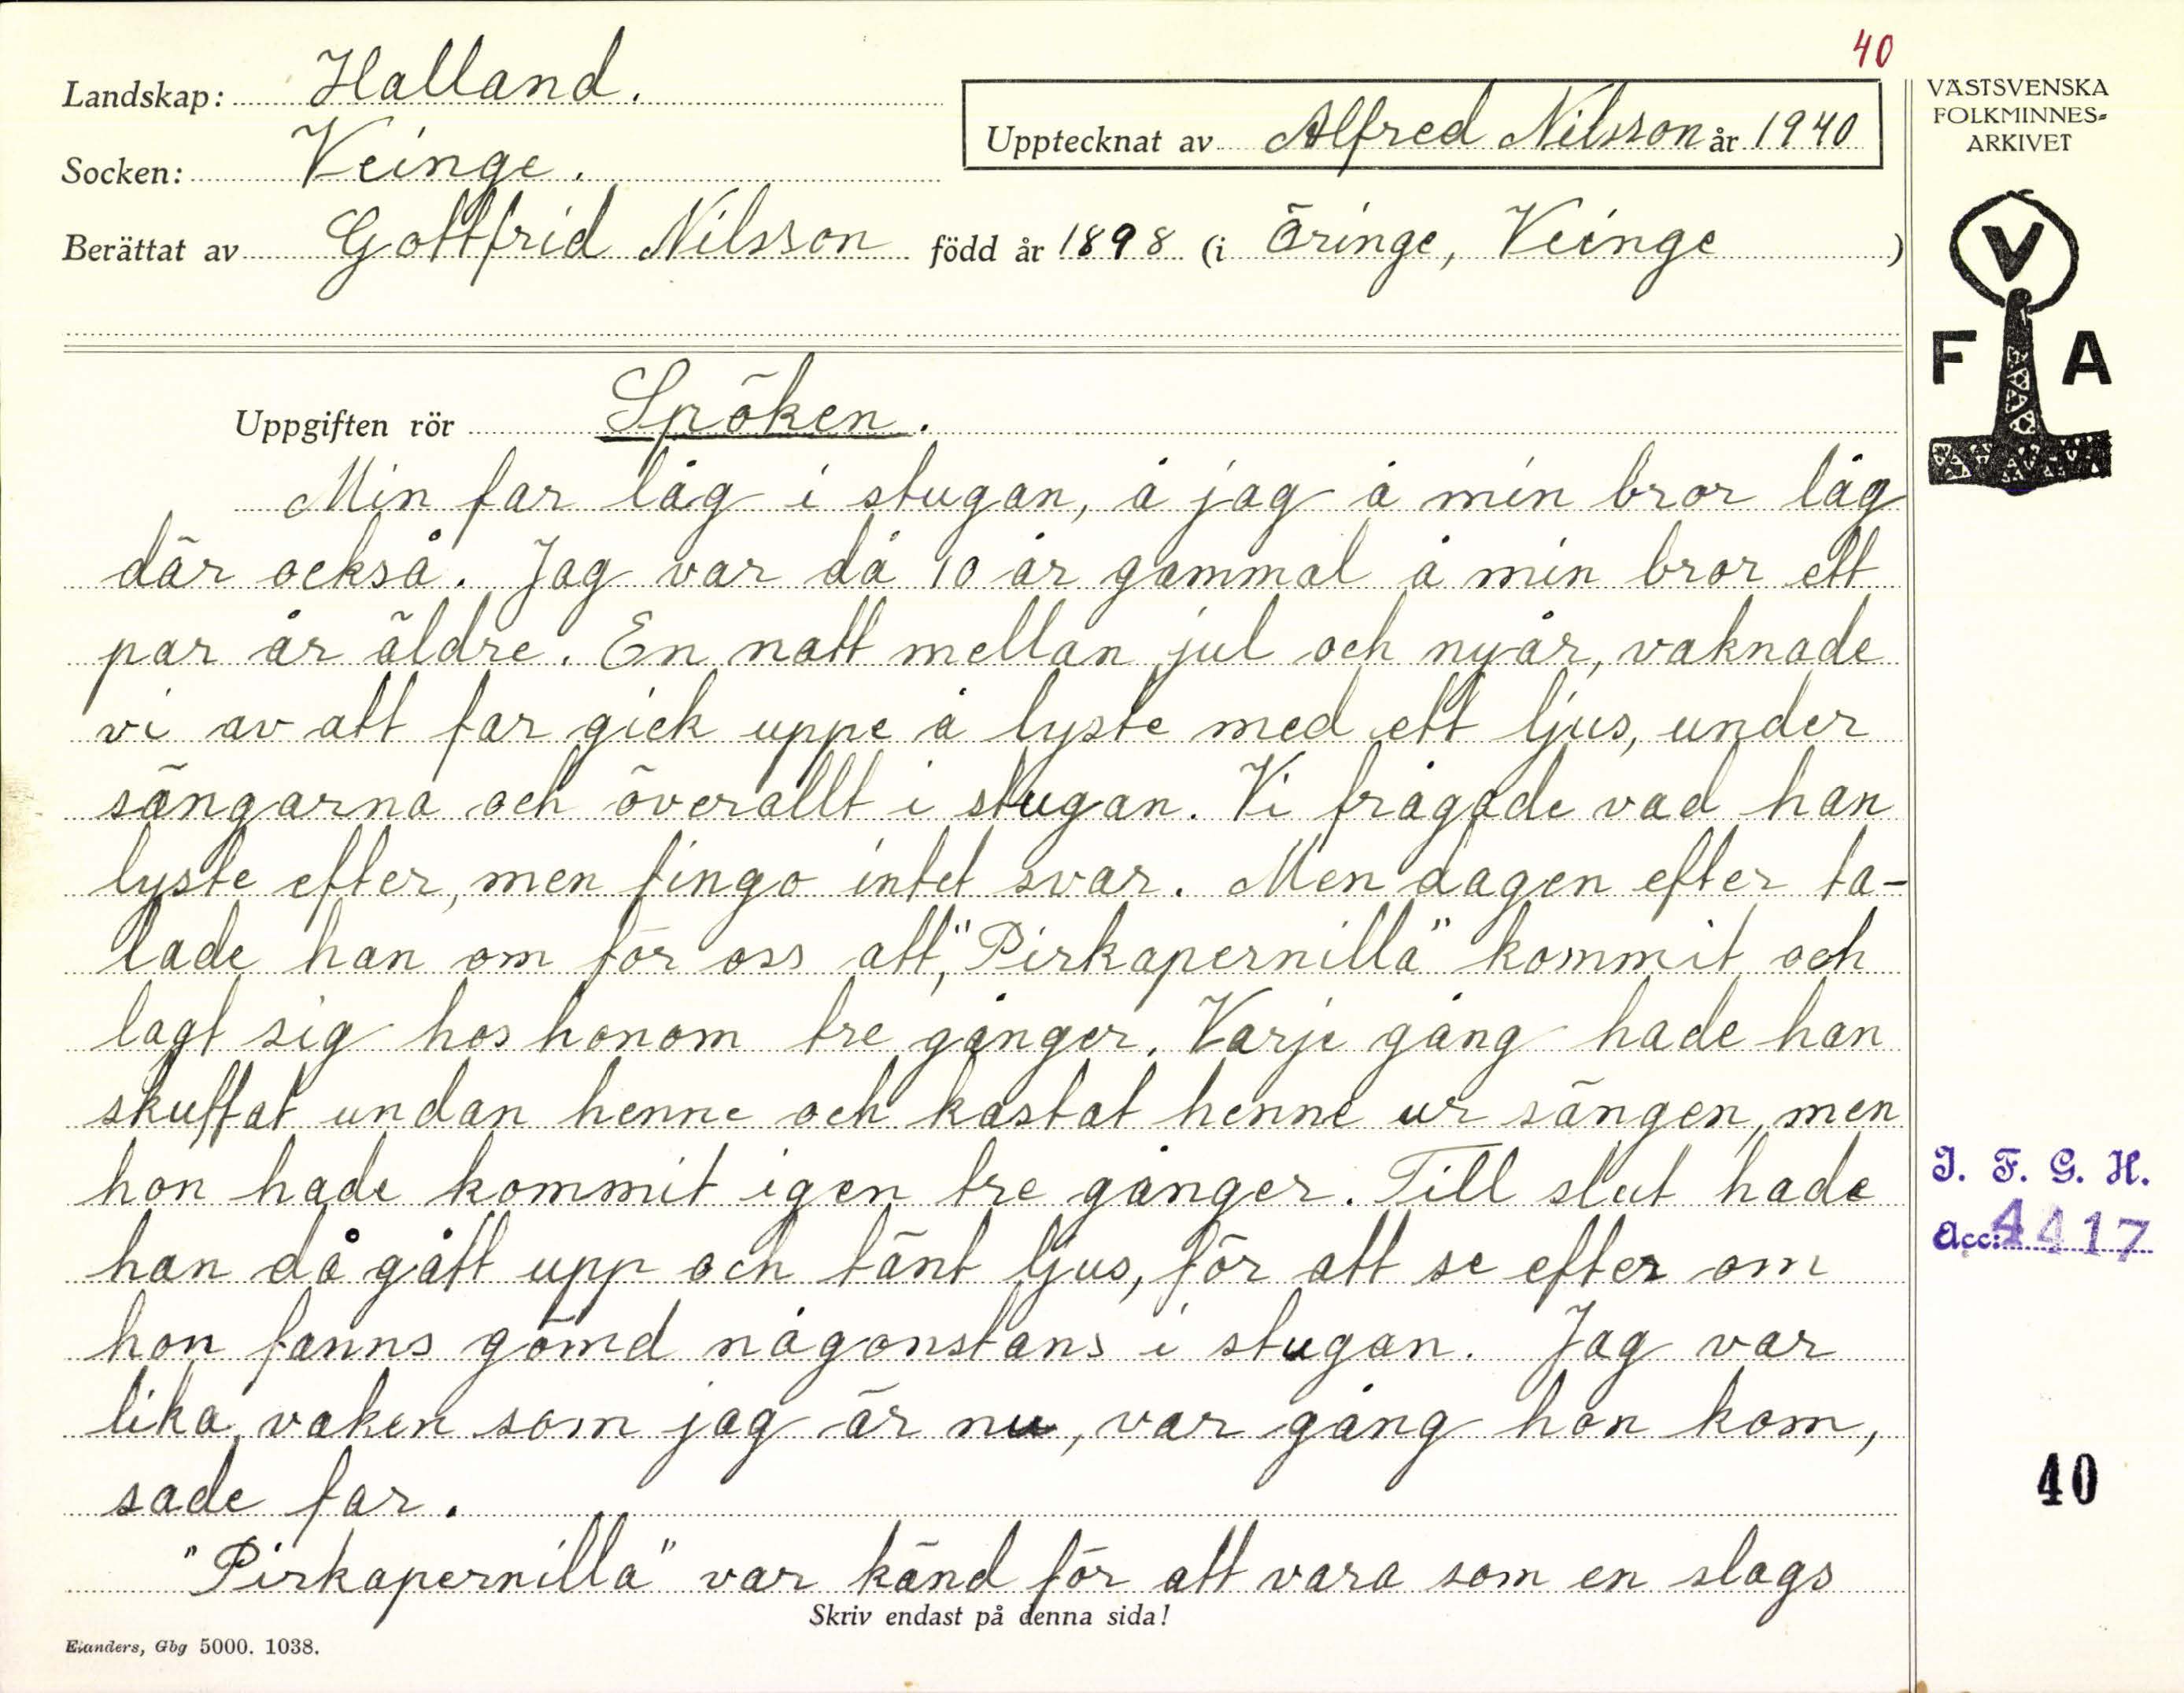 40
Landskap: Halland.
Upptecknat av Alfred Nilsson år 1940
Socken: Veinge.
Berättat av Gottfrid Nilsson född år 1898 (i Öringe, Veinge )
VÄSTSVENSKA
FOLKMINNES=
ARKIVET
V
F A
Uppgiften rör Spöken.
Min far låg i stugan, å jag å min bror låg
där också. Jag var då 10 år gammal å min bror ett
par år äldre. En natt mellan jul och nyår, vaknade
vi av att far gick uppe å lyste med ett ljus, under
sängarna och överallt i stugan. Vi frågade vad han
lyste efter, men fingo intet svar. Men dagen efter ta-
lade han om för oss att, "Pirkapernilla" kommit och
lagt sig hos honom tre gånger. Varje gång hade han
skuffat undan henne och kastat henne ur sängen, men
hon hade kommit igen tre gånger. Till slut hade
han då gått upp och tänt ljus, för att se efter om
hon fanns gömd någonstans i stugan. Jag var
lika vaken som jag är nu, var gång hon kom,
sade far.
"Pirkapernilla" var känd för att vara som en slags
Skriv endast på denna sida!
Elanders, Gbg 5000. 1038.
I. F. G. H.
Acc: 4417
40